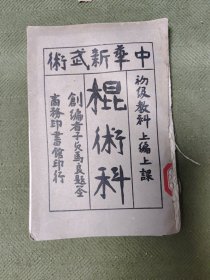 中華新武術
初級教科 上編上課
棍術科
創編者子貞馬良題签
商務印書館印行